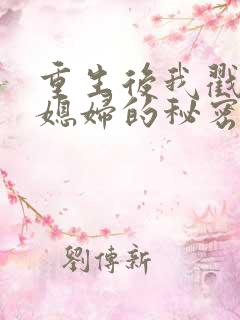 重生後我戳
媳婦的秘密
劉傳新